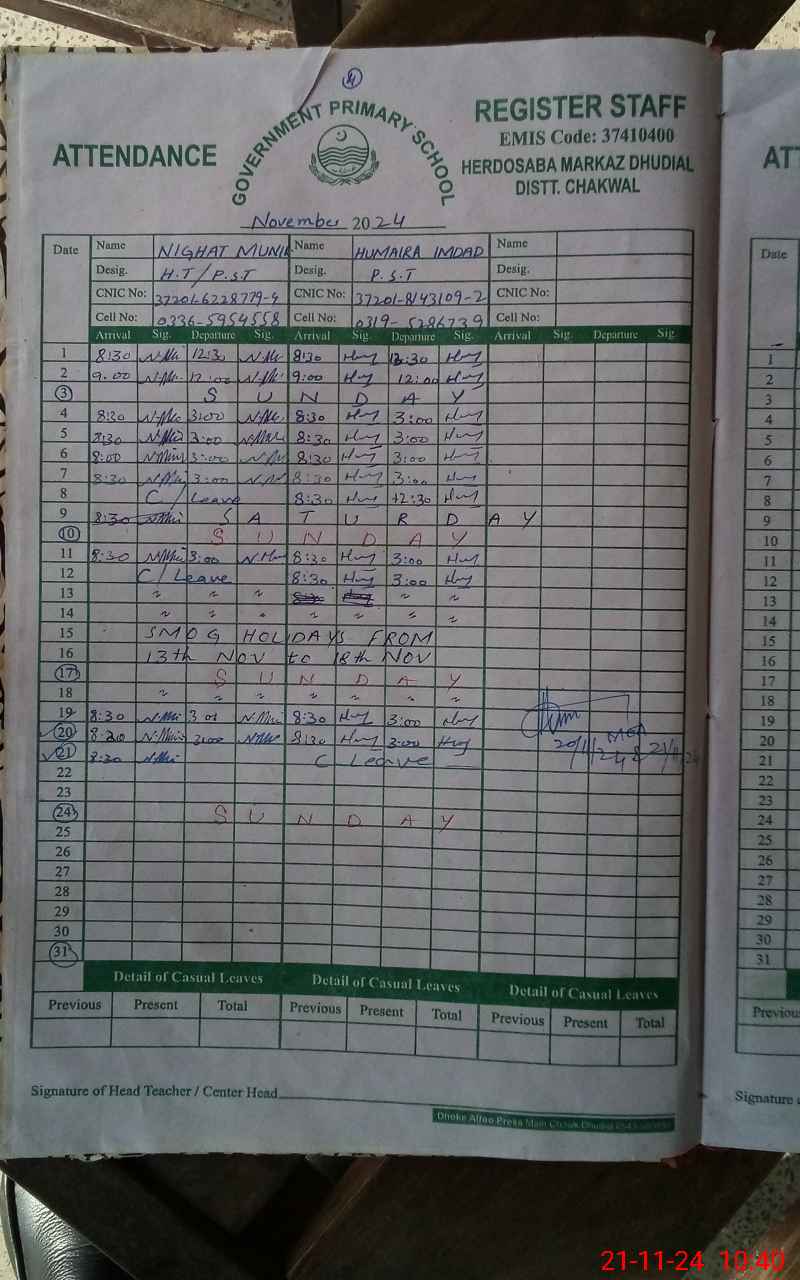 GOVERNMENT PRIMARY SCHOOL
ATTENDANCE
REGISTER STAFF
EMIS Code: 37410400
HERDOSABA MARKAZ DHUDIAL
DISTT. CHAKWAL
November 2024
Date Name NIGHAT MUNIR Name HUMAIRA IMDAD Name
Desig. H.T/P.S.T Desig. P.S.T Desig.
CNIC No: 37201-6228779-4 CNIC No: 37201-8143109-2 CNIC No:
Cell No: 0336-5954558 Cell No: 0319-5286739 Cell No:
Arrival Sig. Departure Sig. Arrival Sig. Departure Sig. Arrival Sig. Departure Sig.
1 8:30 12:30 8:30 12:30
2 9:00 12:00 9:00 12:00
3 SUNDAY
4 8:30 3:00 8:30 3:00
5 8:30 3:00 8:30 3:00
6 8:00 3:00 8:30 3:00
7 8:30 3:00 8:30 3:00
8 C/Leave 8:30 12:30
9 8:30 SATURDAY
10 SUNDAY
11 8:30 3:00 8:30 3:00
12 C/Leave 8:30 3:00
13 " " " " "
14 " " " " " "
15 SMOG HOLIDAYS FROM
16 13th NOV to 18th NOV
17 SUNDAY
18 " " " " " " "
19 8:30 3:01 8:30 3:00
20 8:30 3:00 8:30 3:00
21 8:30 C Leave
20/11/24 & 21/11/24
22
23
24 SUNDAY
25
26
27
28
29
30
31
Detail of Casual Leaves Detail of Casual Leaves Detail of Casual Leaves
Previous Present Total Previous Present Total Previous Present Total
Signature of Head Teacher / Center Head
Date
1
2
3
4
5
6
7
8
9
10
11
12
13
14
15
16
17
18
19
20
21
22
23
24
25
26
27
28
29
30
31
Signature
21-11-24 10:40